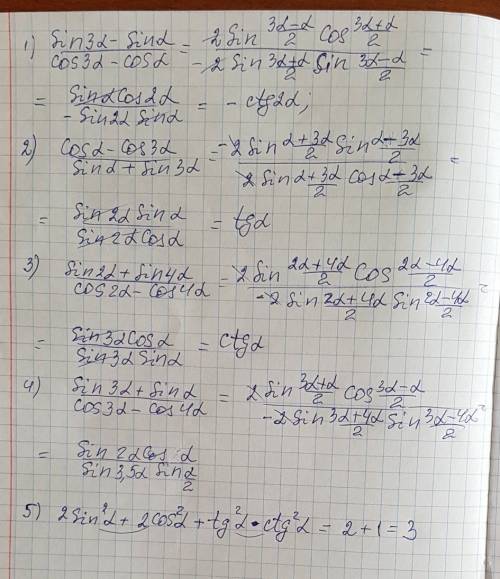 1) (sin3α - sinα)/(cos3α - cosα) = (2 sin (3α-α)/2 cos (3α+α)/2)/(-2 sin (3α+α)/2 sin (3α-α)/2) =
= (sinα cos2α)/(-sin2α sinα) = - ctg2α;
2) (cosα - cos3α)/(sinα + sin3α) = (-2 sin (α+3α)/2 sin (α-3α)/2)/(2 sin (α+3α)/2 cos (α-3α)/2) =
= (sin2α sinα)/(sin2α cosα) = tgα
3) (sin2α + sin4α)/(cos2α - cos4α) = (2 sin (2α+4α)/2 cos (2α-4α)/2)/(-2 sin (2α+4α)/2 sin (2α-4α)/2) =
= (sin3α cosα)/(sin3α sinα) = ctgα
4) (sin3α + sinα)/(cos3α - cos4α) = (2 sin (3α+α)/2 cos (3α-α)/2)/(-2 sin (3α+4α)/2 sin (3α-4α)/2) =
= (sin2α cosα)/(sin3,5α sin α/2)
5) 2sin²α + 2cos²α + tg²α • ctg²α = 2 + 1 = 3